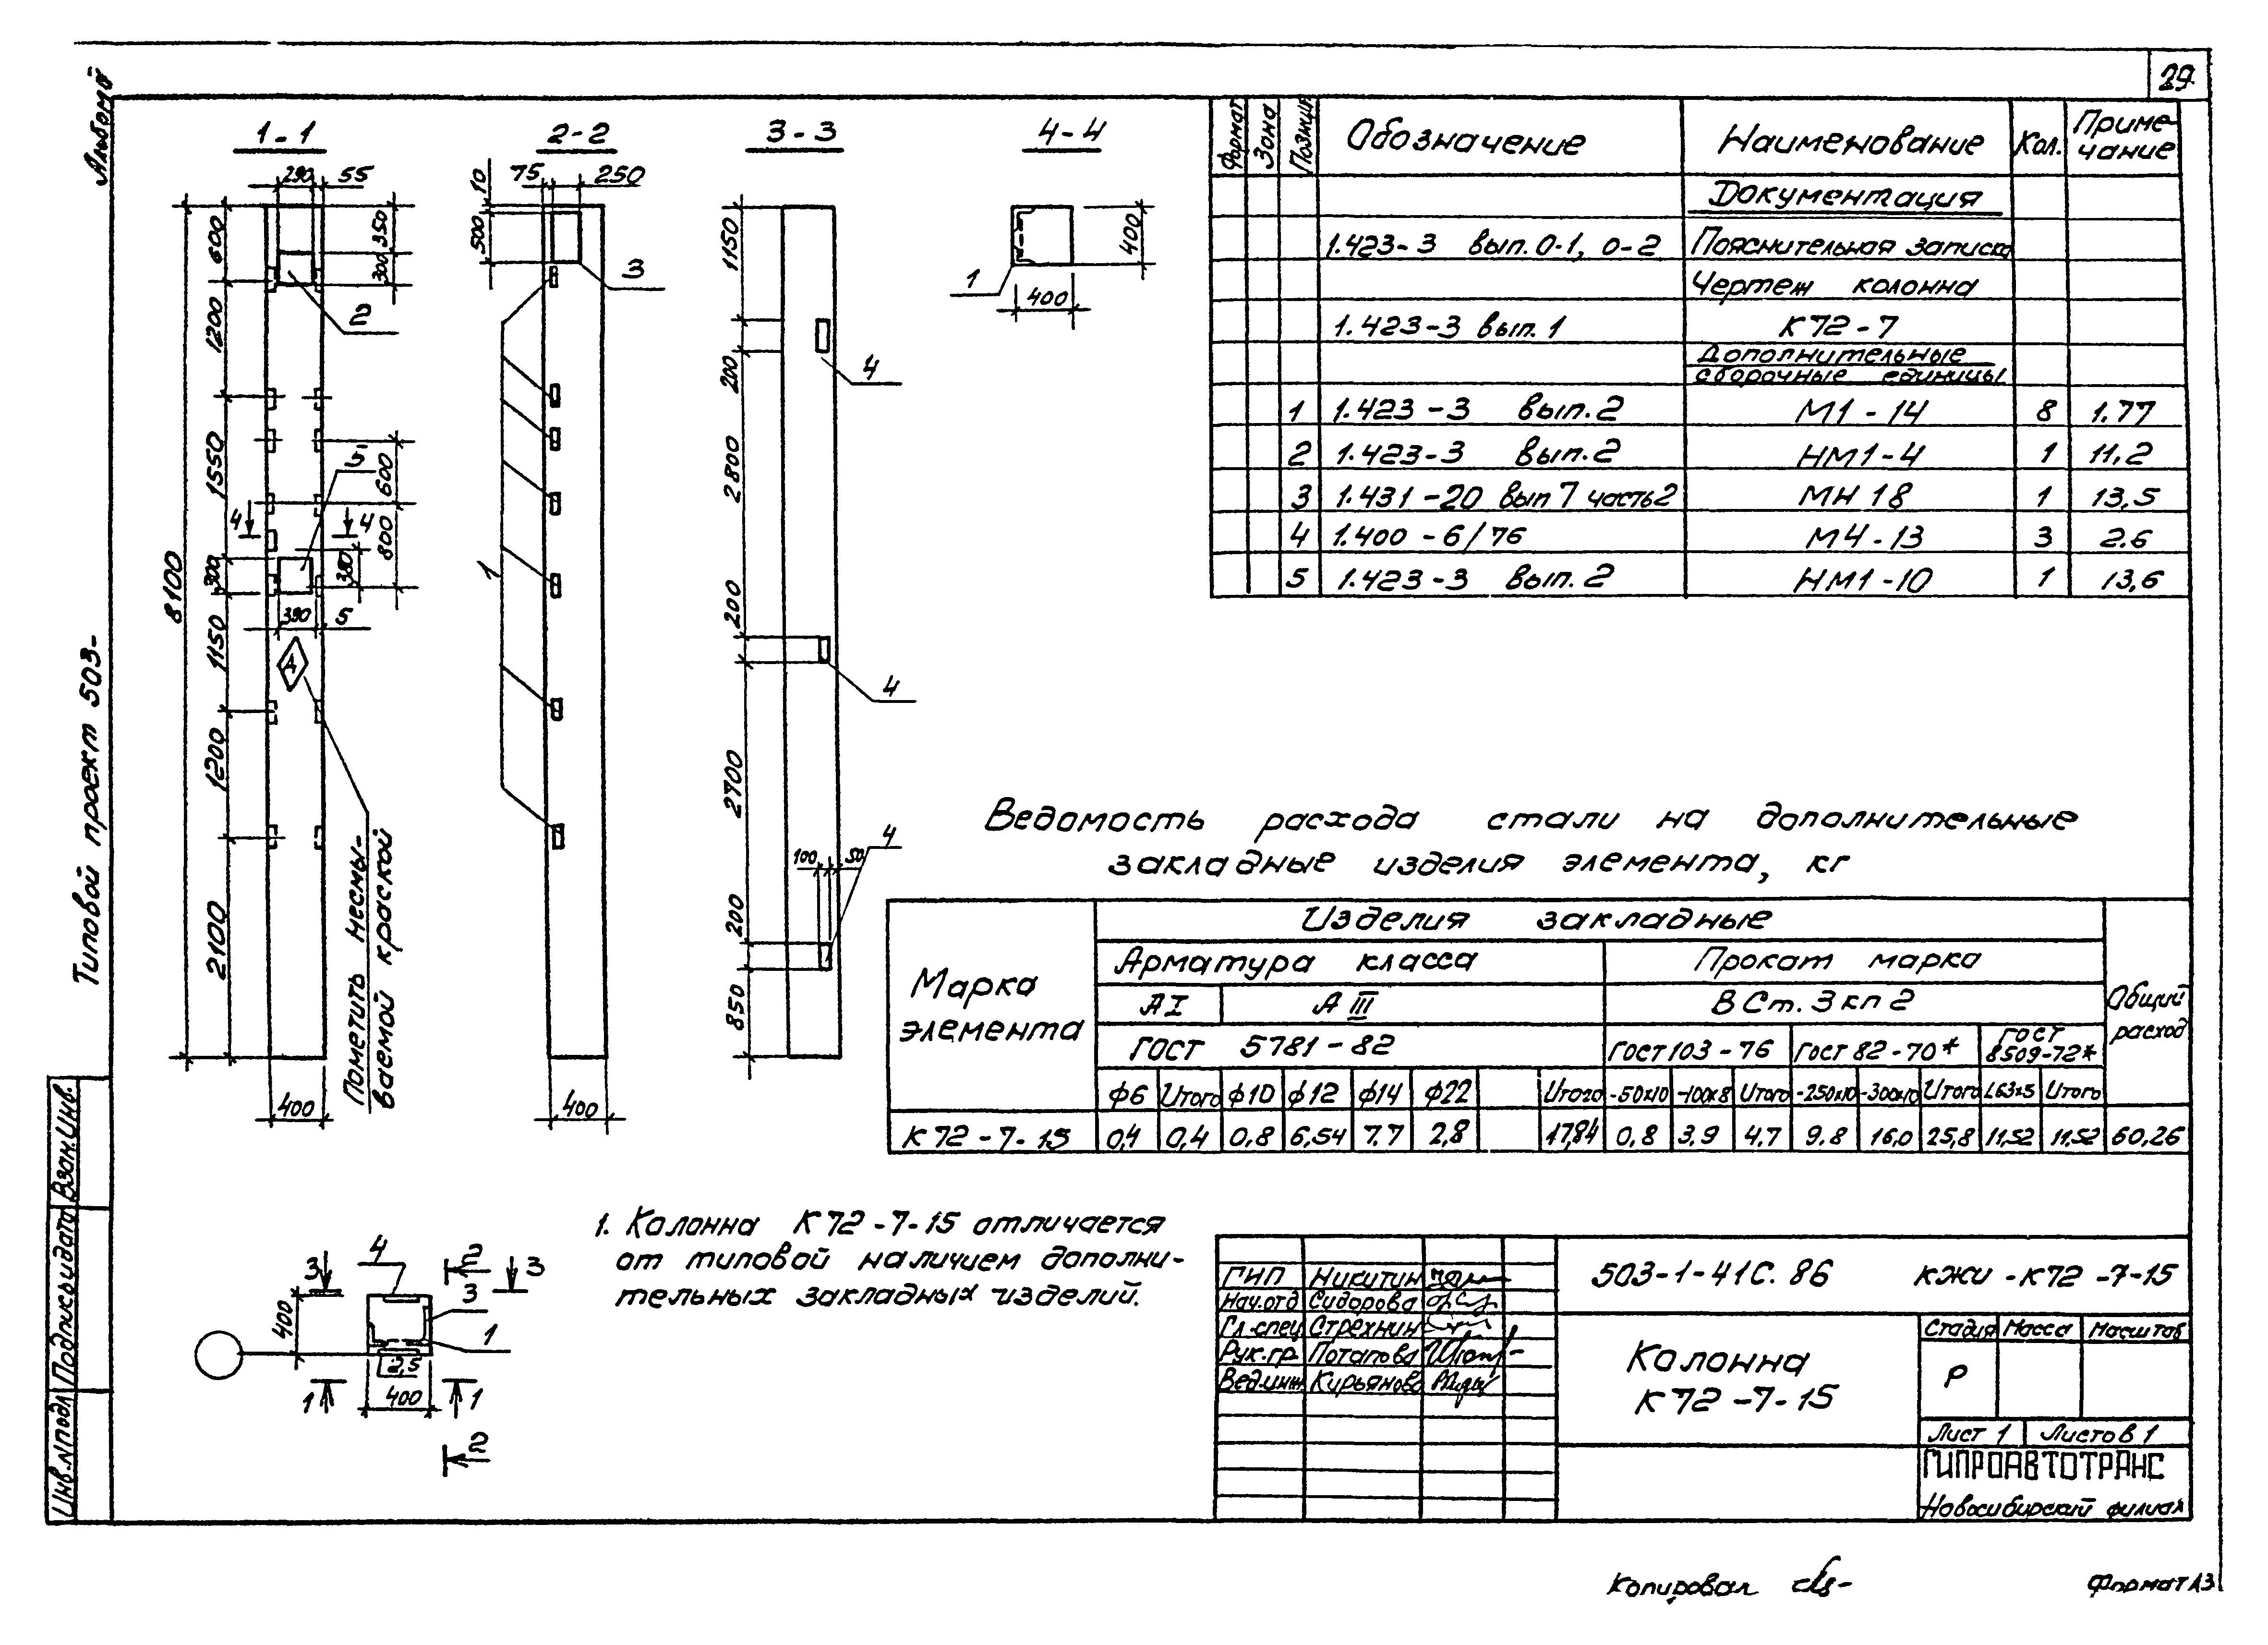 29
Альбом
1-1
2-2
3-3
4-4
290
55
600
350
300
1200
2
1550
5
600
800
4
4
300
8100
1150
5
А
1200
2100
400
Пометить несмы-
ваемой краской
10
75
250
500
3
1
400
1150
200
4
2800
200
4
2700
100
50
4
200
850
400
1
400
Типовой проект 503-
Формат
Зона
Позиция
Обозначение
Наименование
Кол.
Приме-
чание
Документация
1.423-3 вып. 0-1, 0-2 Пояснительная записка
Чертеж колонна
1.423-3 вып. 1 К72-7
Дополнительные
сборочные единицы
1 1.423-3 вып. 2 М1-14 8 1.77
2 1.423-3 вып. 2 НМ1-4 1 11,2
3 1.431-20 вып 7 часть 2 МН 18 1 13,5
4 1.400-6/76 М4-13 3 2.6
5 1.423-3 вып. 2 НМ1-10 1 13,6
Ведомость расхода стали на дополнительные
закладные изделия элемента, кг
Марка
элемента
Изделия закладные
Общий
расход
Арматура класса
Прокат марка
А I
А III
В Ст. 3 кп 2
ГОСТ 5781-82
Гост 103-76
Гост 82-70*
ГОСТ
8509-72*
ф6 Итого ф10 ф12 ф14 ф22 Итого -50х10 -100х8 Итого -250х10 -300х10 Итого L63х5 Итого
К72-7-15 0,4 0,4 0,8 6,54 7.7 2,8 17,84 0,8 3,9 4,7 9.8 16,0 25,8 11,52 11.52 60,26
1. Колонна К72-7-15 отличается
от типовой наличием дополни-
тельных закладных изделий.
3
4
2
3
3
400
1
2,5
400
1
1
2
Взам.Инв.
Подпись и дата
Инв.Nподл
ГИП Никитин
Нач.отд Сидорова
Гл.спец Стрехнин
Рук.гр. Потапова
Вед.инж Кирьянова
503-1-41С.86 КЖИ-К72-7-15
Колонна
К72-7-15
Стадия Масса Масштаб
Р
Лист 1 Листов 1
ГИПРОАВТОТРАНС
Новосибирский филиал
Копировал
Формат А3